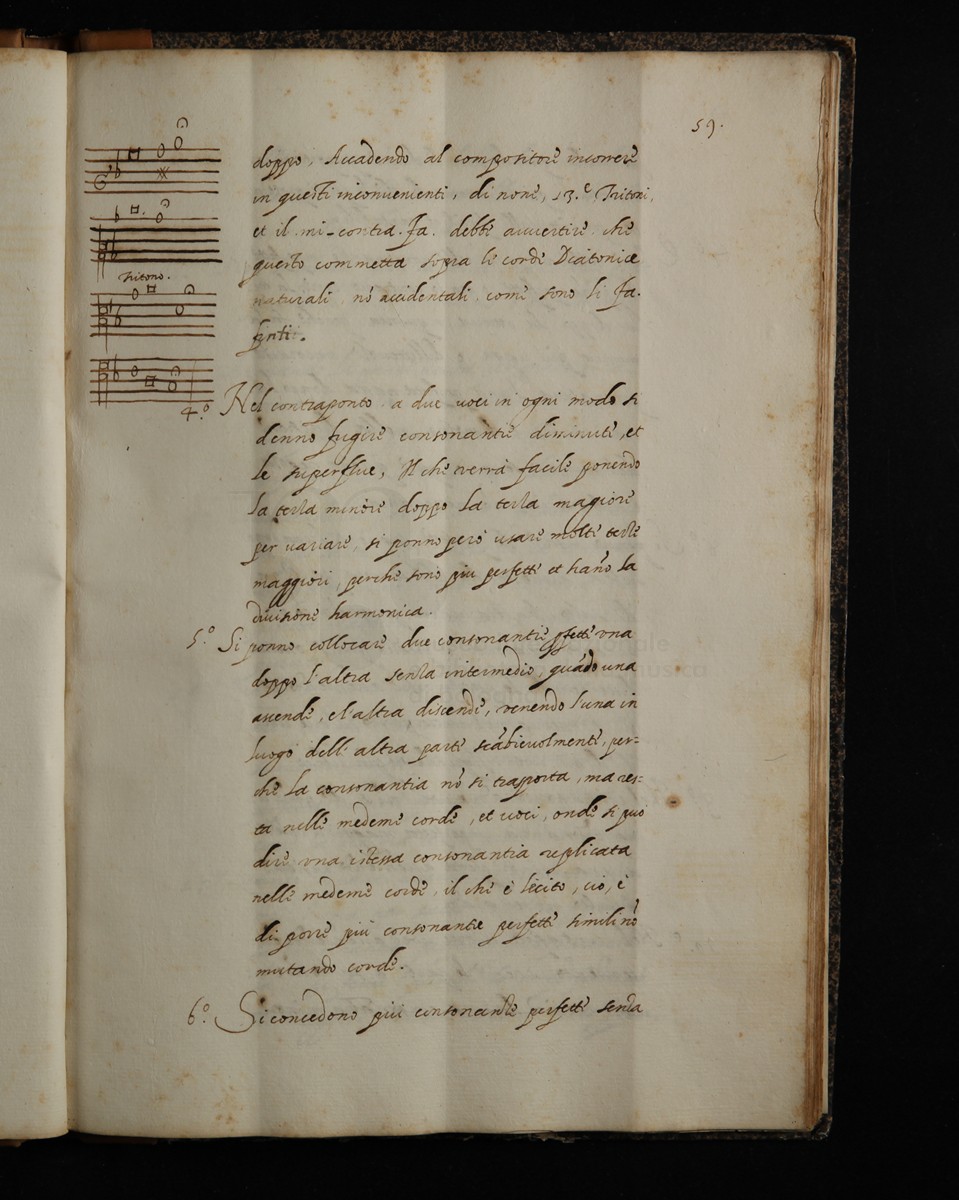 59.
doppo, Accadendo al compositore incorrere
in questi inconuenienti, di none, 13.e Tritoni,
et il mi-contra-fa. debbe auuertire che
questo commetta sopra le corde Diatonice
naturali nó accidentali come sono li fa.
finti.
Tritono.
4.o Nel contraponto a due uoci in ogni modo si
denno fugire consonantie diminute, et
le superflue, Il che uerrà facile ponendo
la terza minore doppo la terza magiore
per uariare, si ponno però usare molte terze
maggiori, perche sono piu perfette et hano la
diuisione harmonica.
5.o Si ponno collocare due consonantie pfette una
doppo l'altra senza intermedio, quádo una
ascende, e l'altra discende, uenendo l'una in
luogo dell'altra parte scábieuolmente, per=
che la consonantia nó si trasporta, ma res=
ta nelle medeme corde, et uoci, onde si può
dire una istessa consonantia replicata
nelle medeme corde, il che è lecito, cio, è
di porre più consonantie perfette simili nó
mutando corde.
6.o Si concedono più consonantie perfette senza